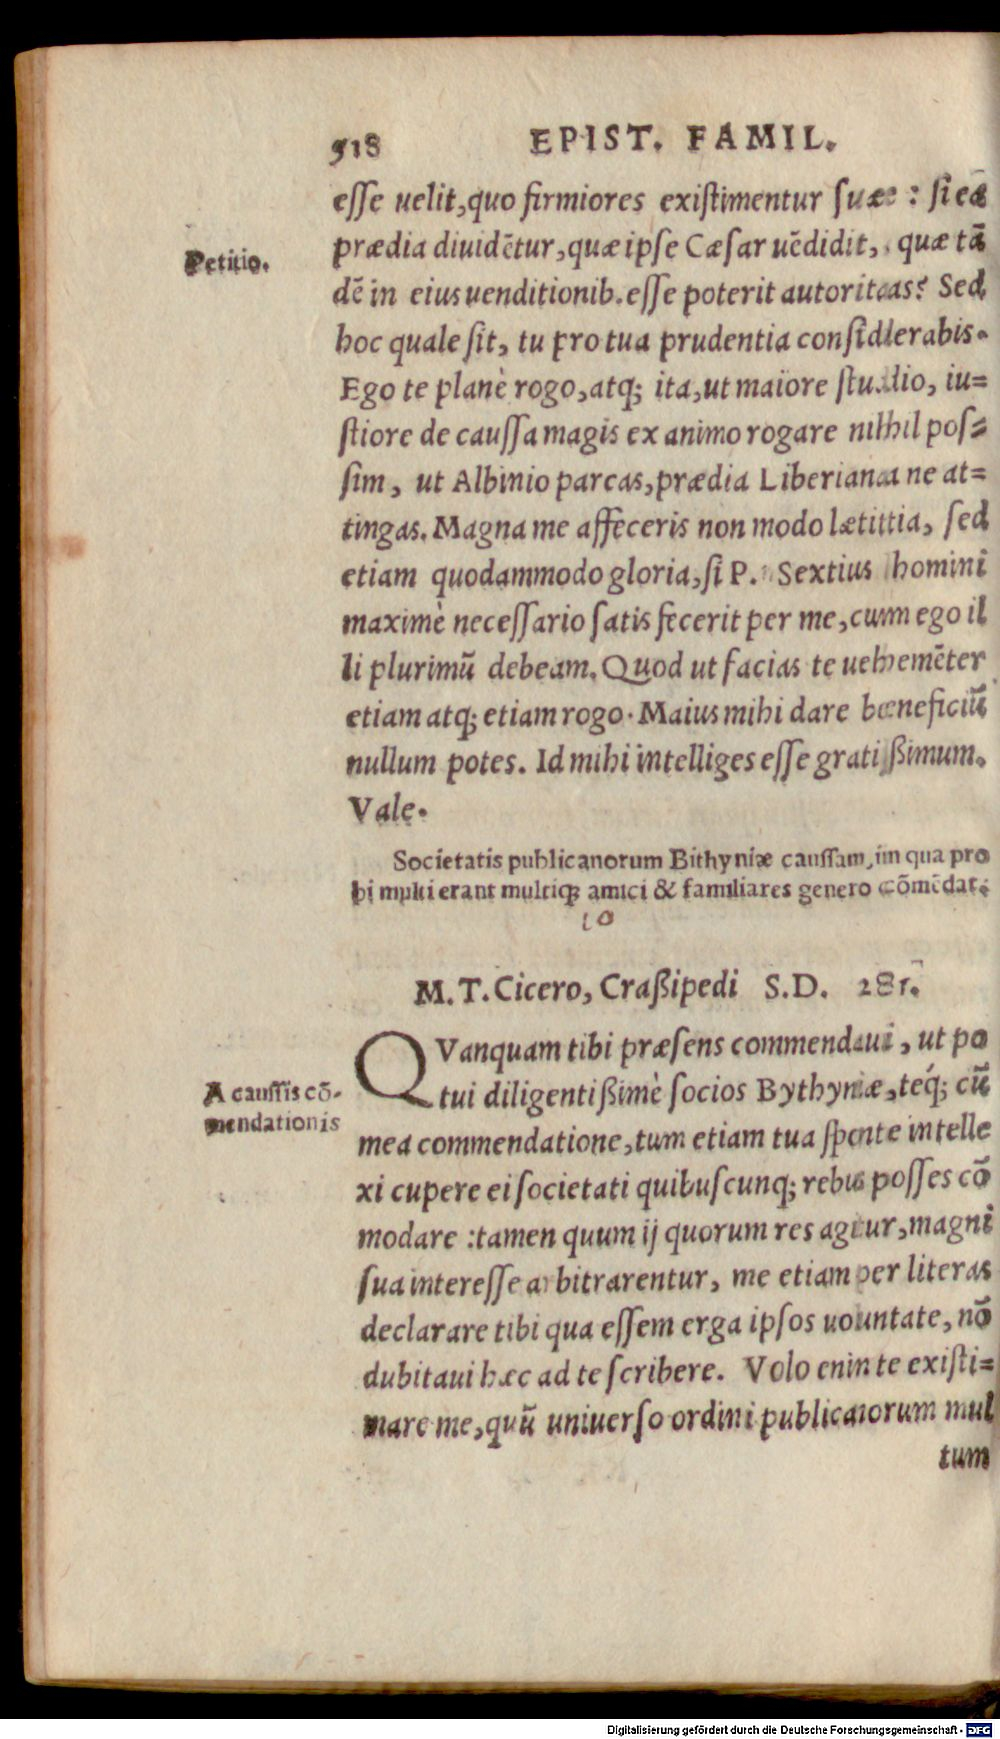 518 EPIST. FAMIL.
esse uelit, quo firmiores existimentur suæ : si eã
prædia diuidētur, quæ ipse Cæsar uēdidit, quæ tã
Petitio.
dē in eius uenditionib. esse poterit autoritas? Sed
hoc quale sit, tu pro tua prudentia considerabis.
Ego te planè rogo, atq; ita, ut maiore studio, iu=
stiore de caussa magis ex animo rogare nihil pos=
sim, ut Albinio parcas, prædia Liberiana ne at=
tingas. Magna me affeceris non modo lætitia, sed
etiam quodammodo gloria, si P. Sextius homini
maximè necessario satis fecerit per me, cum ego il
li plurimũ debeam. Quod ut facias te uehemēter
etiam atq; etiam rogo. Maius mihi dare beneficiũ
nullum potes. Id mihi intelliges esse gratißimum.
Vale.
Societatis publicanorum Bithyniæ caussam, in qua pro
bi multi erant multiq; amici & familiares genero cõmēdat.
10
M. T. Cicero, Craßipedi S. D. 281.
QVanquam tibi præsens commendaui, ut po
A caussis cõ-
mendationis
tui diligentißimè socios Bythyniæ, teq́; cũ
mea commendatione, tum etiam tua sponte intelle
xi cupere ei societati quibuscunq; rebus posses cõ
modare : tamen quum ij quorum res agitur, magni
sua interesse arbitrarentur, me etiam per literas
declarare tibi qua essem erga ipsos uoluntate, nõ
dubitaui hæc ad te scribere. Volo enim te existi=
mare me, quũ uniuerso ordini publicanorum mul
tum
Digitalisierung gefördert durch die Deutsche Forschungsgemeinschaft - DFG